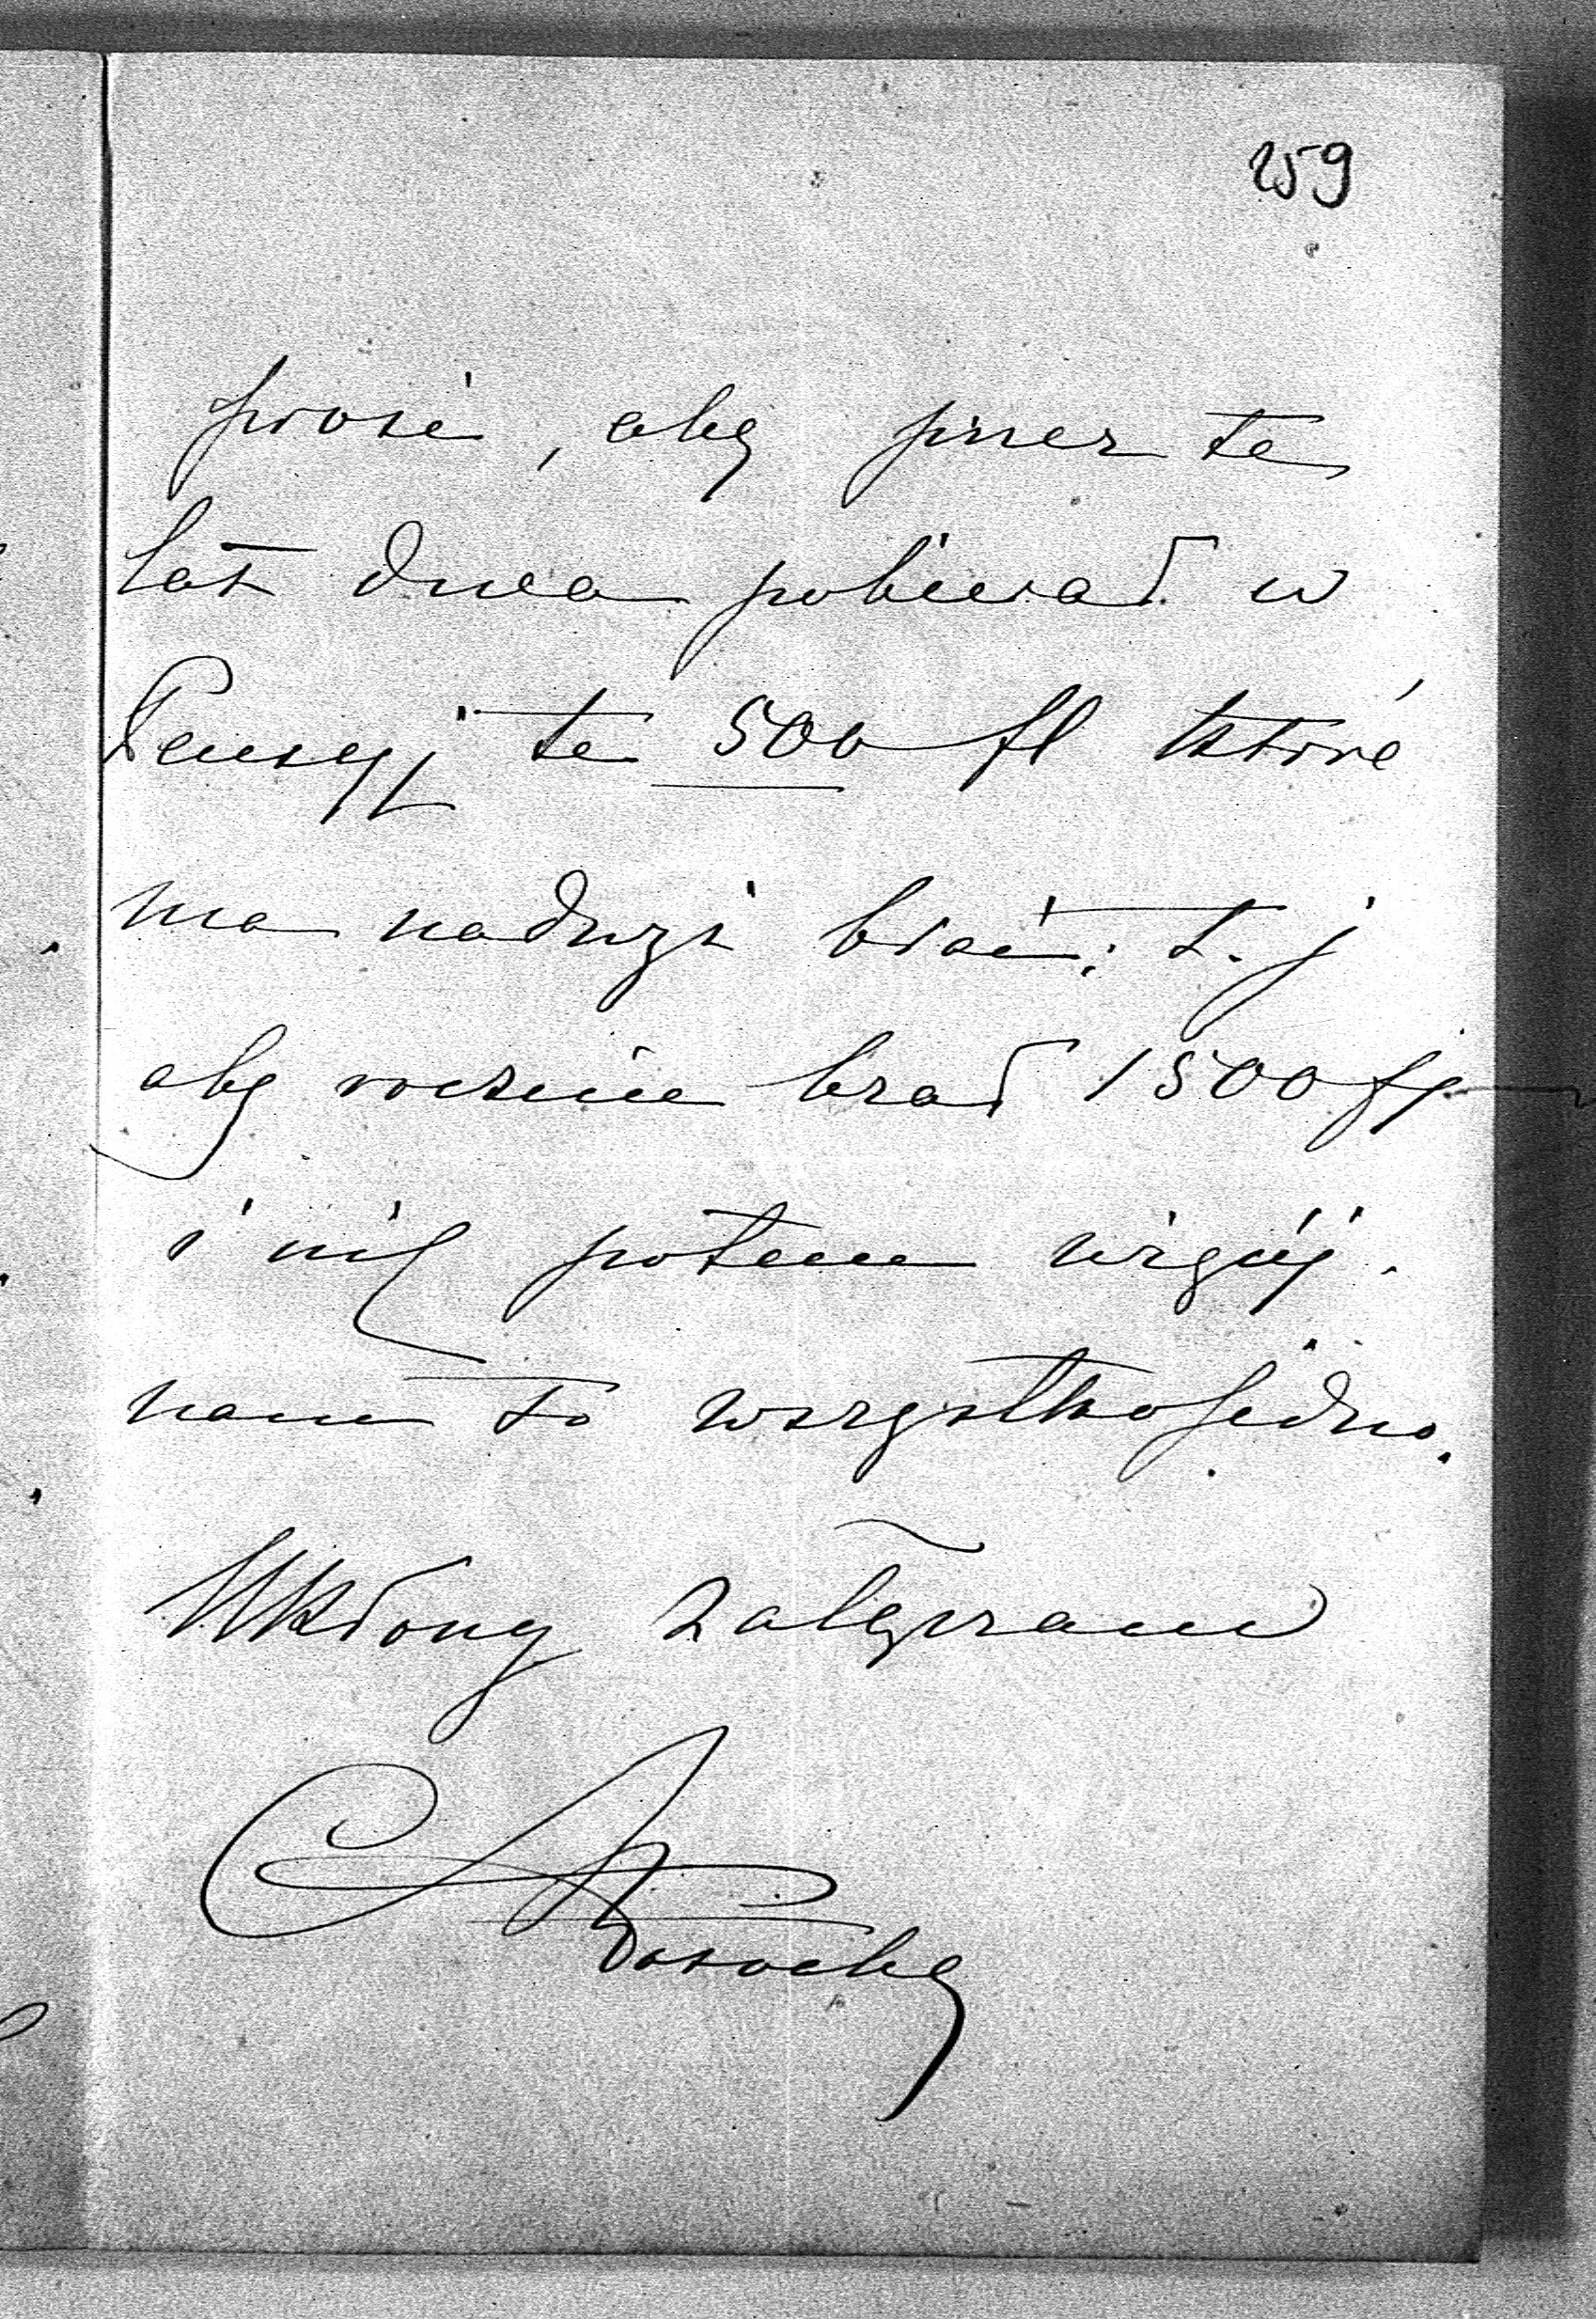 259
prosi, aby przez te
lat dwa pobierał w
Pensyj te 500 fl które
ma nadwyż brać: t. j
aby rocznie brał 1500 fl
i nic potem więcéj.
nam to wszystko jedno.
Ukłony załączam